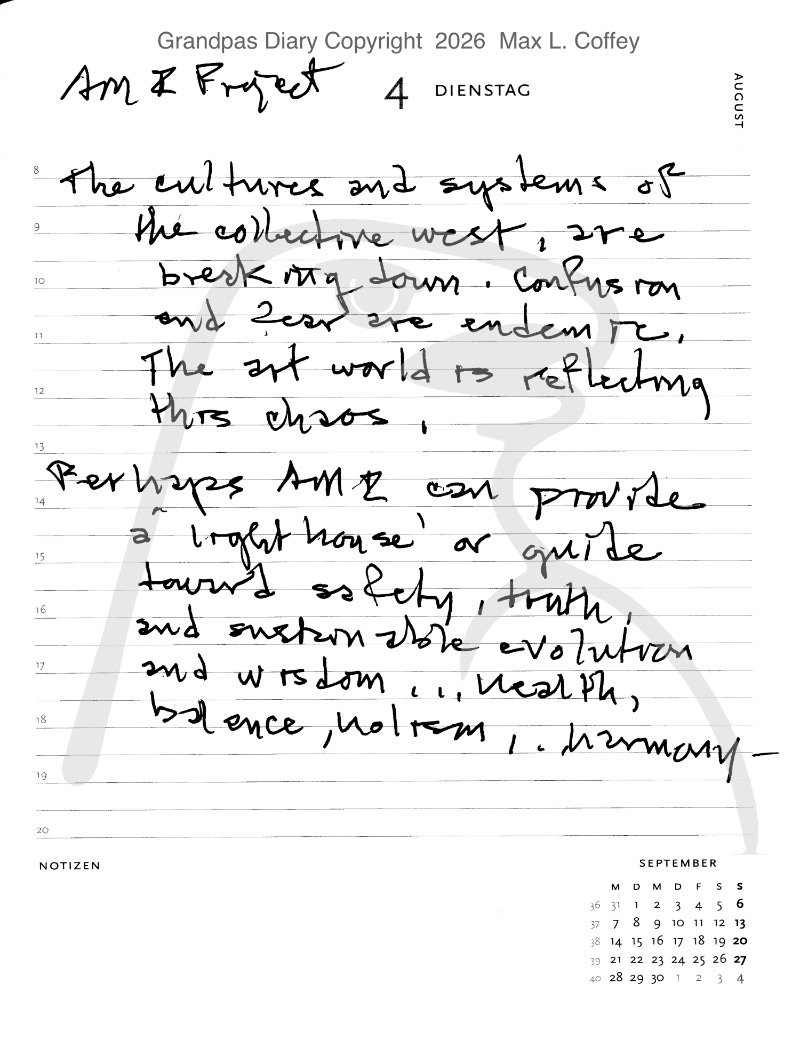 Grandpas Diary Copyright 2026 Max L. Coffey
AMZ Project 4 DIENSTAG AUGUST
8 The cultures and systems of
9 the collective west, are
10 breaking down. Confusion
11 and fear are endemic,
The art world is reflecting
12 this chaos,
13
Perhaps AMZ can provide
14 a 'lighthouse' or guide
15 toward safety, truth,
16 and sustainable evolution
17 and wisdom ... health,
18 balance, holism, .. harmony—
19
20
NOTIZEN
SEPTEMBER
M D M D F S S
36 31 1 2 3 4 5 6
37 7 8 9 10 11 12 13
38 14 15 16 17 18 19 20
39 21 22 23 24 25 26 27
40 28 29 30 1 2 3 4